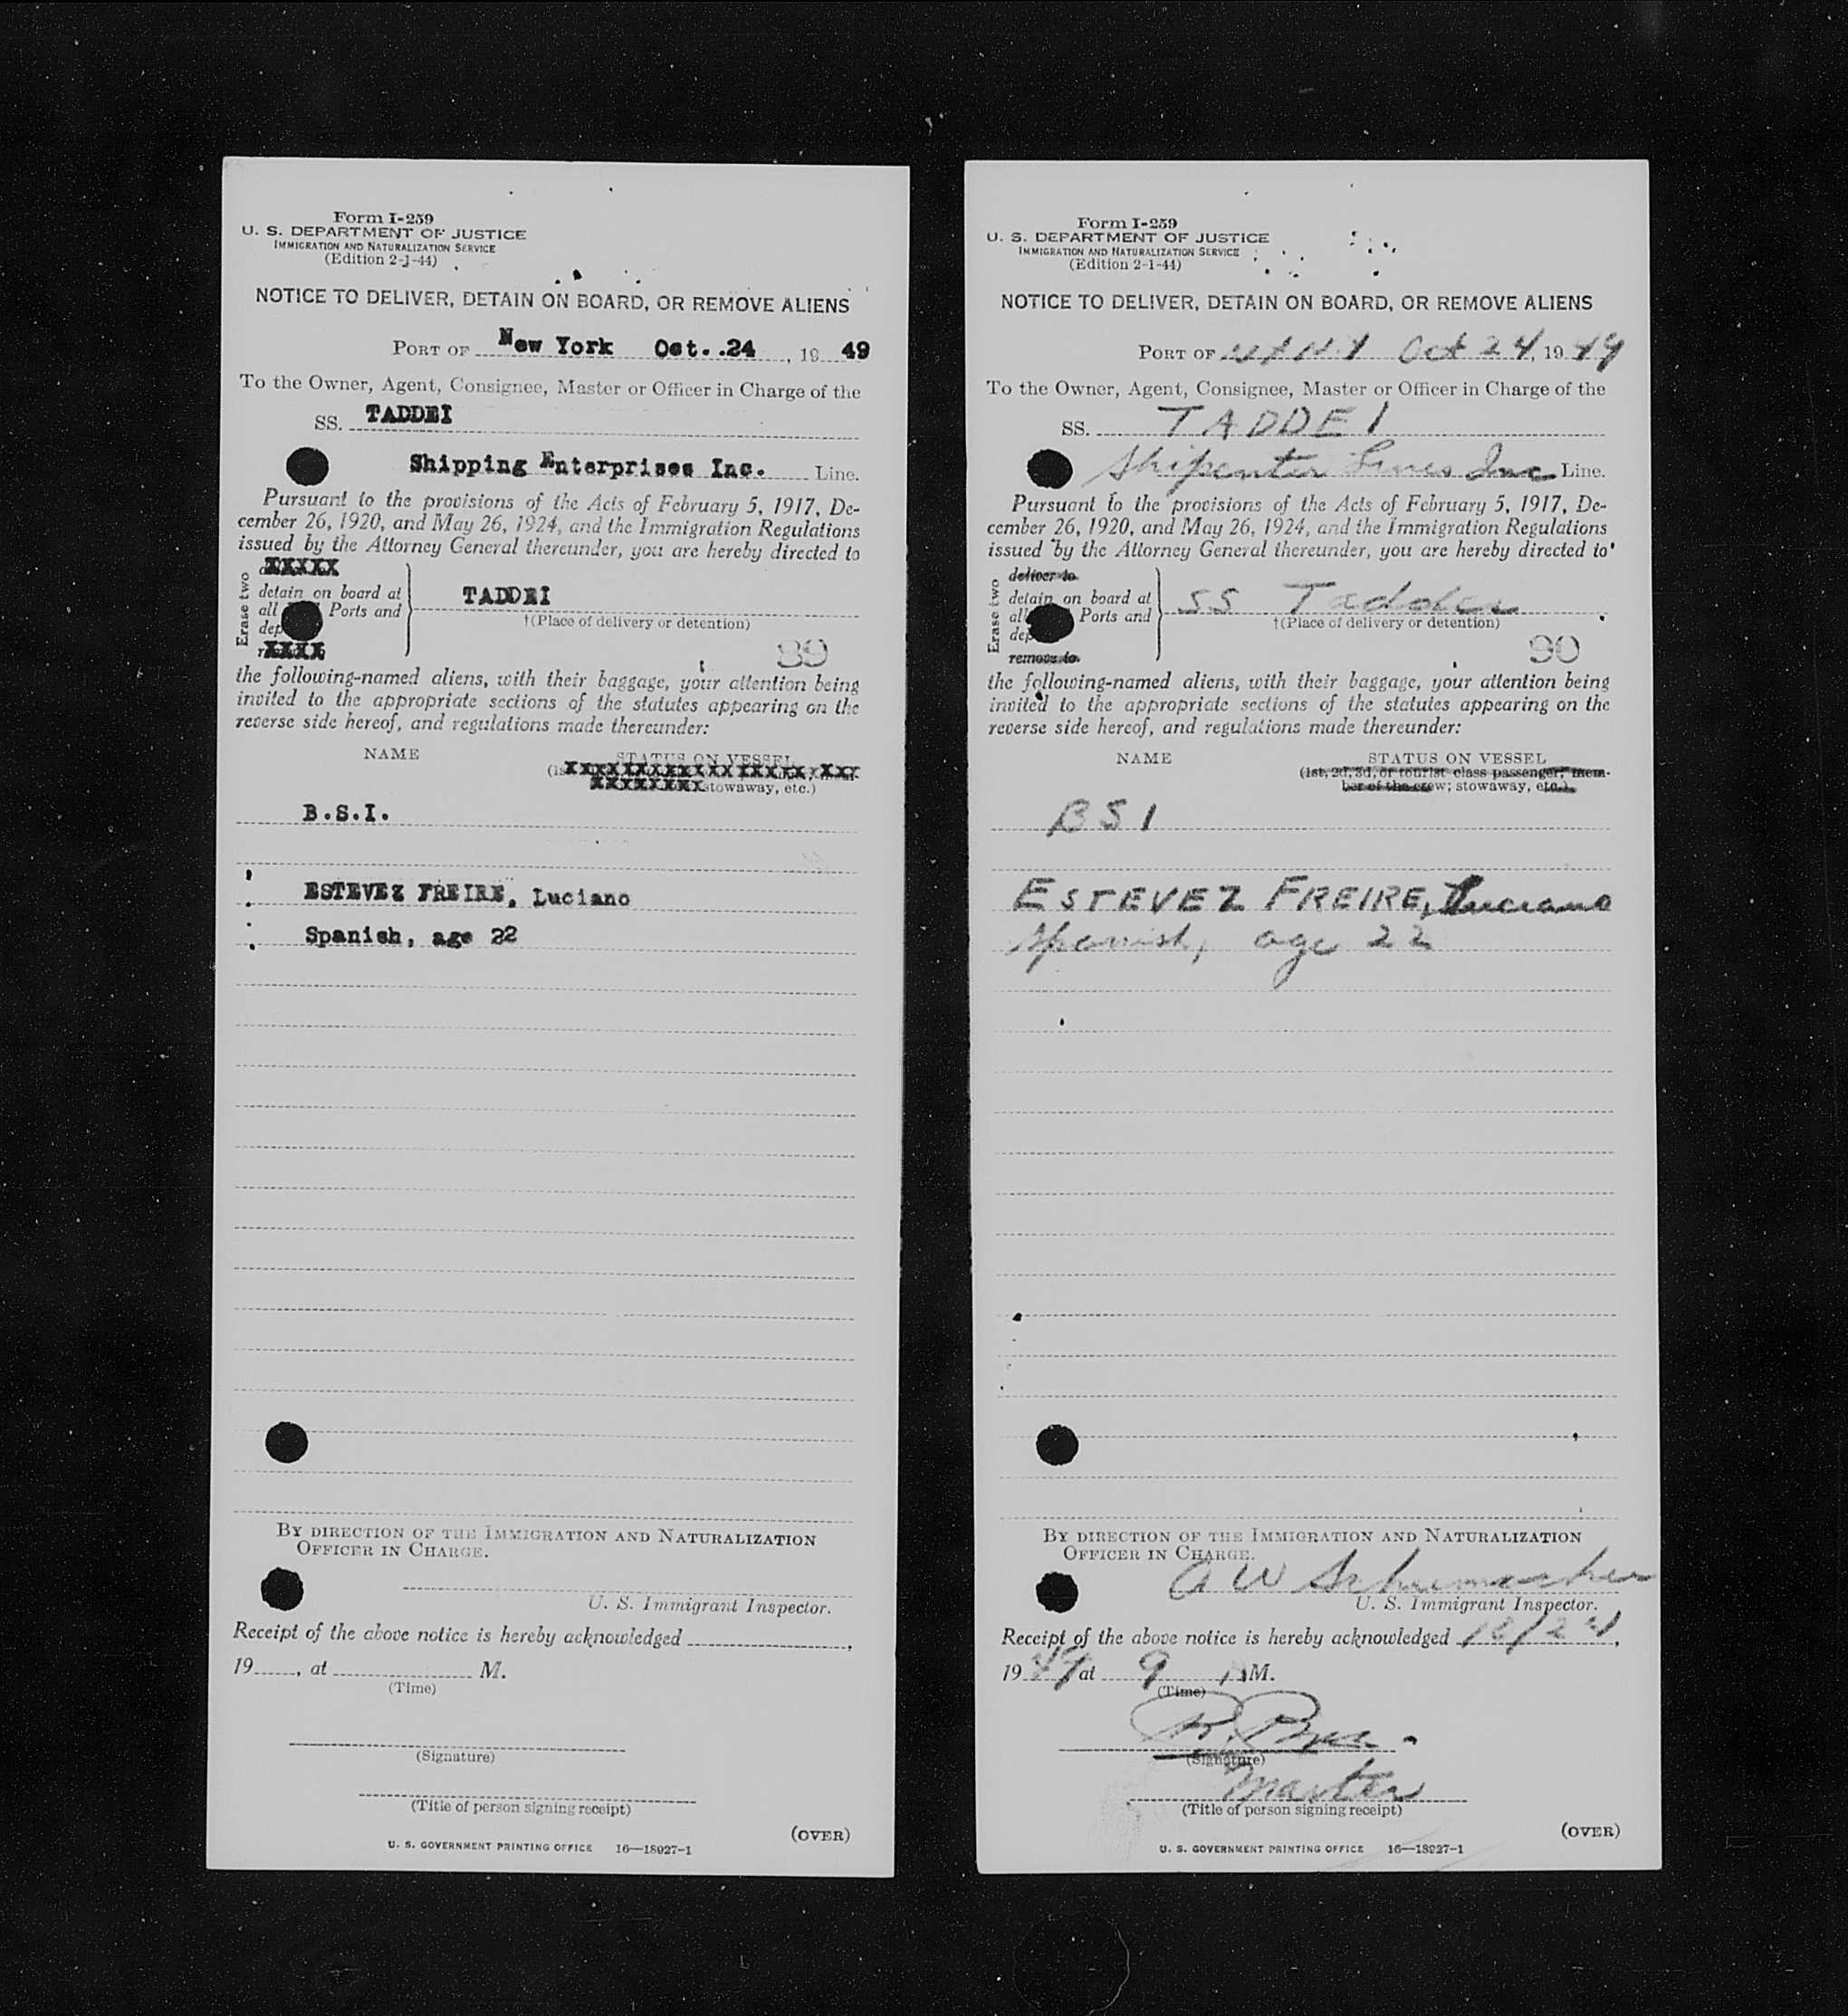 Form I-259
U. S. DEPARTMENT OF JUSTICE
IMMIGRATION AND NATURALIZATION SERVICE
(Edition 2-1-44)
NOTICE TO DELIVER, DETAIN ON BOARD, OR REMOVE ALIENS
PORT OF New York Oct. .24, 1949
To the Owner, Agent, Consignee, Master or Officer in Charge of the
SS. TADDEI
Shipping Enterprises Inc. Line.
Pursuant to the provisions of the Acts of February 5, 1917, De-
cember 26, 1920, and May 26, 1924, and the Immigration Regulations
issued by the Attorney General thereunder, you are hereby directed to
Erase two
XXXXX
detain on board at
all Ports and
dep
XXXX
TADDEI
†(Place of delivery or detention)
89
the following-named aliens, with their baggage, your attention being
invited to the appropriate sections of the statutes appearing on the
reverse side hereof, and regulations made thereunder:
NAME STATUS ON VESSEL
stowaway, etc.)
B.S.I.
ESTEVEZ FREIRE, Luciano
Spanish, age 22
BY DIRECTION OF THE IMMIGRATION AND NATURALIZATION
OFFICER IN CHARGE.
U. S. Immigrant Inspector.
Receipt of the above notice is hereby acknowledged ,
19 , at M.
(Time)
(Signature)
(Title of person signing receipt)
(OVER)
U. S. GOVERNMENT PRINTING OFFICE 16—18927-1
Form I-259
U. S. DEPARTMENT OF JUSTICE
IMMIGRATION AND NATURALIZATION SERVICE
(Edition 2-1-44)
NOTICE TO DELIVER, DETAIN ON BOARD, OR REMOVE ALIENS
PORT OF NY NY Oct 24, 1949
To the Owner, Agent, Consignee, Master or Officer in Charge of the
SS. TADDEI
Shipenter Lines Inc Line.
Pursuant to the provisions of the Acts of February 5, 1917, De-
cember 26, 1920, and May 26, 1924, and the Immigration Regulations
issued by the Attorney General thereunder, you are hereby directed to
Erase two
deliver to
detain on board at
all Ports and
dep
remove to
SS Taddei
†(Place of delivery or detention)
90
the following-named aliens, with their baggage, your attention being
invited to the appropriate sections of the statutes appearing on the
reverse side hereof, and regulations made thereunder:
NAME STATUS ON VESSEL
(1st, 2d, 3d, or tourist class passenger; mem-
ber of the crew; stowaway, etc.)
BSI
ESTEVEZ FREIRE, Luciano
Spanish, age 22
BY DIRECTION OF THE IMMIGRATION AND NATURALIZATION
OFFICER IN CHARGE.
A W Schumacher
U. S. Immigrant Inspector.
Receipt of the above notice is hereby acknowledged 10/24,
1949 at 9 AM.
(Time)
(Signature)
Master
(Title of person signing receipt)
(OVER)
U. S. GOVERNMENT PRINTING OFFICE 16—18927-1